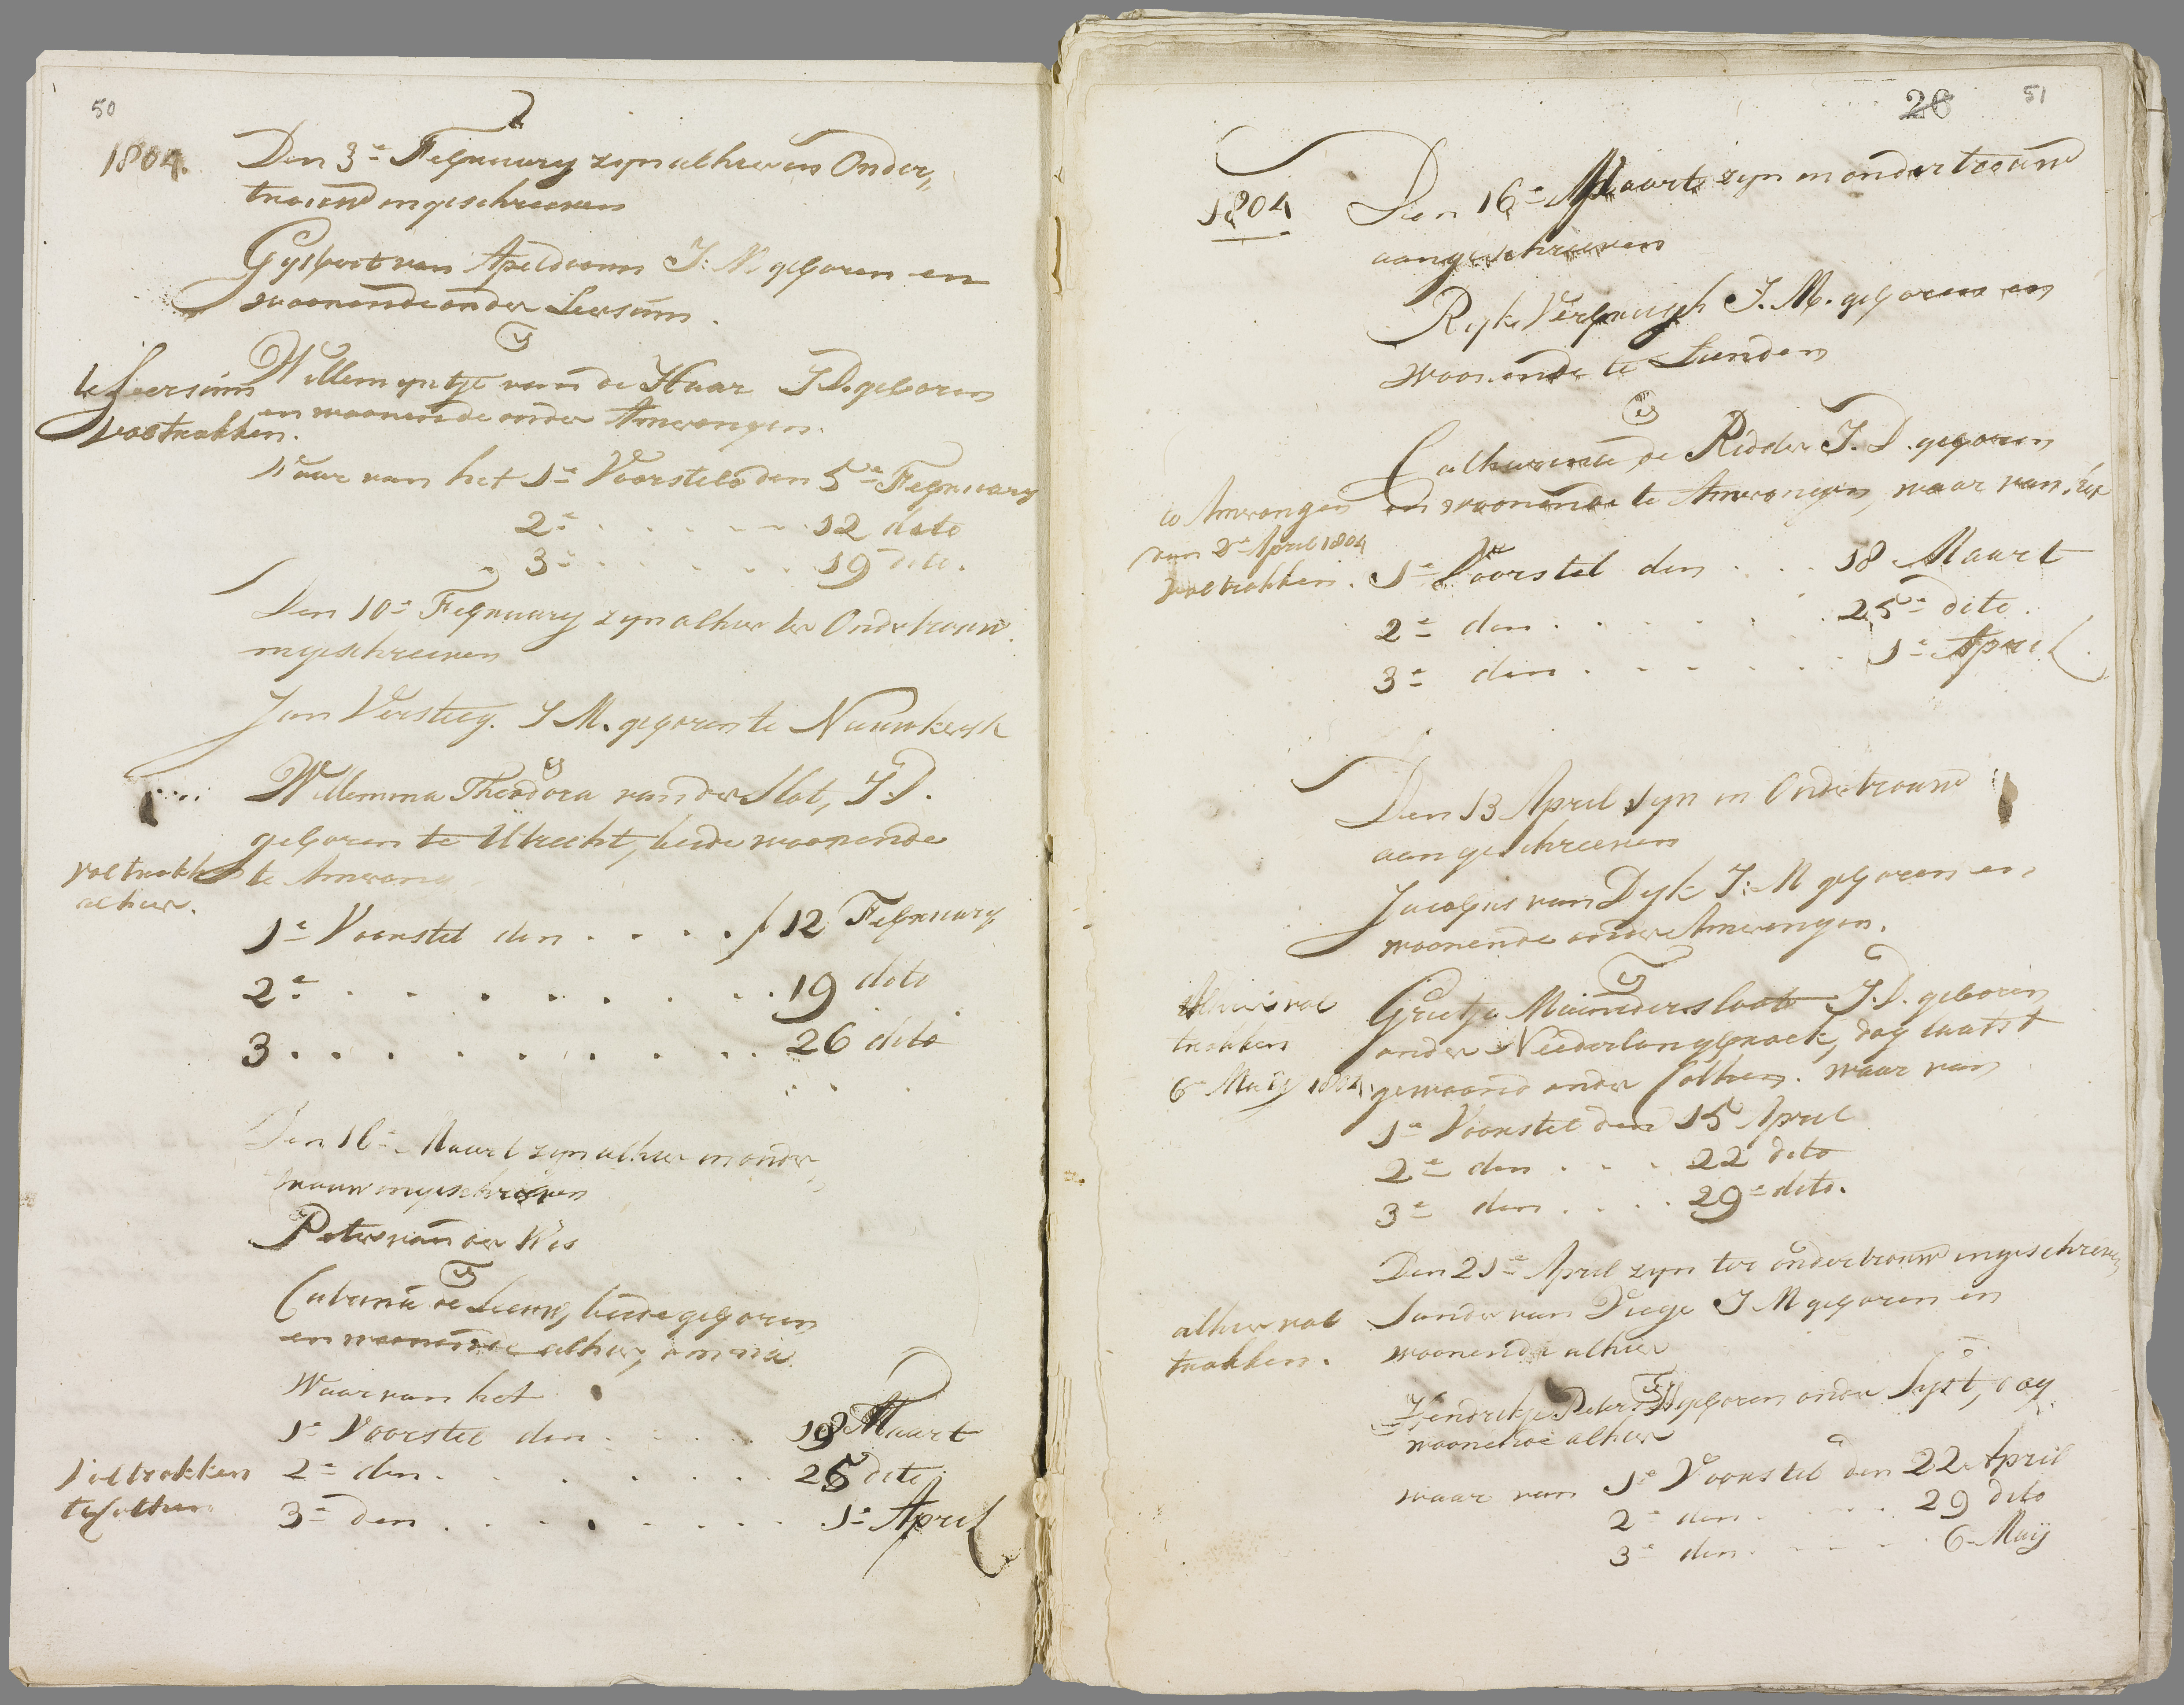 50
1804.
Den 3e February zyn alhier in Onder„
trouwd ingeschreeven
Gysbert van Apeldoorn J: M. geboren en
woonende onder Leersum.
&
Willemyntje van de Haar J D. geboren
en woonende onder Amerongen.
te Leersum
voltrokken.
Waar van het 1e Voorstel den 5e February
2e . . . . . 12 dito
3e . . . . . 19 dito.
Den 10e February zyn alhier ter Ondertrouw
ingeschreeven
Jan Versteeg. J M. geboren te Nieuwkerk
&
Willemina Theodora van der Slot, J. D.
geboren te Utrecht, beide woonende
te Amerong
voltrokk
alhier.
1e Voorstel den . . . . 12 February
2e . . . . . . . . . 19 dito
3 . . . . . . . . . 26 dito
Den 16e Maart zyn alhier in onder„
trouw ingeschreven
Peter van der Wes
&
Catrina de Leeuw, beide geboren
en woonende alhier,
Waar van het
1e Voorstel den . . . . . 18 Maart
2e den . . . . . . . 25 dito
3e den . . . . . . . . 1e April
Voltrokken
te Cothen
26
51
1804
Den 16e Maart zyn in ondertrouw
aangeschreeven
Ryk Verbrugh J. M. geboren en
woonende te Lunden
&
Catharina de Ridder J. D. geboren
en woonende te Amerongen, waar van het
to Amerongen
den 2e April 1804
voltrokken.
1e Voorstel den . . . 18 Maart
2e den . . . . . . 25e dito.
3e den . . . . . . 1e April.
Den 13 April zyn in Ondertrouw
aangeschreeven
Jacobus van Dyk J: M geboren en
woonende onder Amerongen.
&
Grietje Meindersloot J. D. geboren
onder Nederlangbroek, dog laatst
gewoond onder Cothen. waar van
Alhier vol
trokken
6 Maij 1804
1e Voorstel den 15 April
2e den . . . 22 dito
3e den . . . . 29e dito.
Den 21e April zyn ter ondertrouw ingeschreven
Sander van Viege J M geboren en
woonende alhier
&
Hendrikje Peters geboren onder Syst, dog
woonende alhier
alhier vol
trokken.
waar van 1e Voorstel den 22 April
2e den . . . . . 29 dito
3e den . . . . . 6 Maij